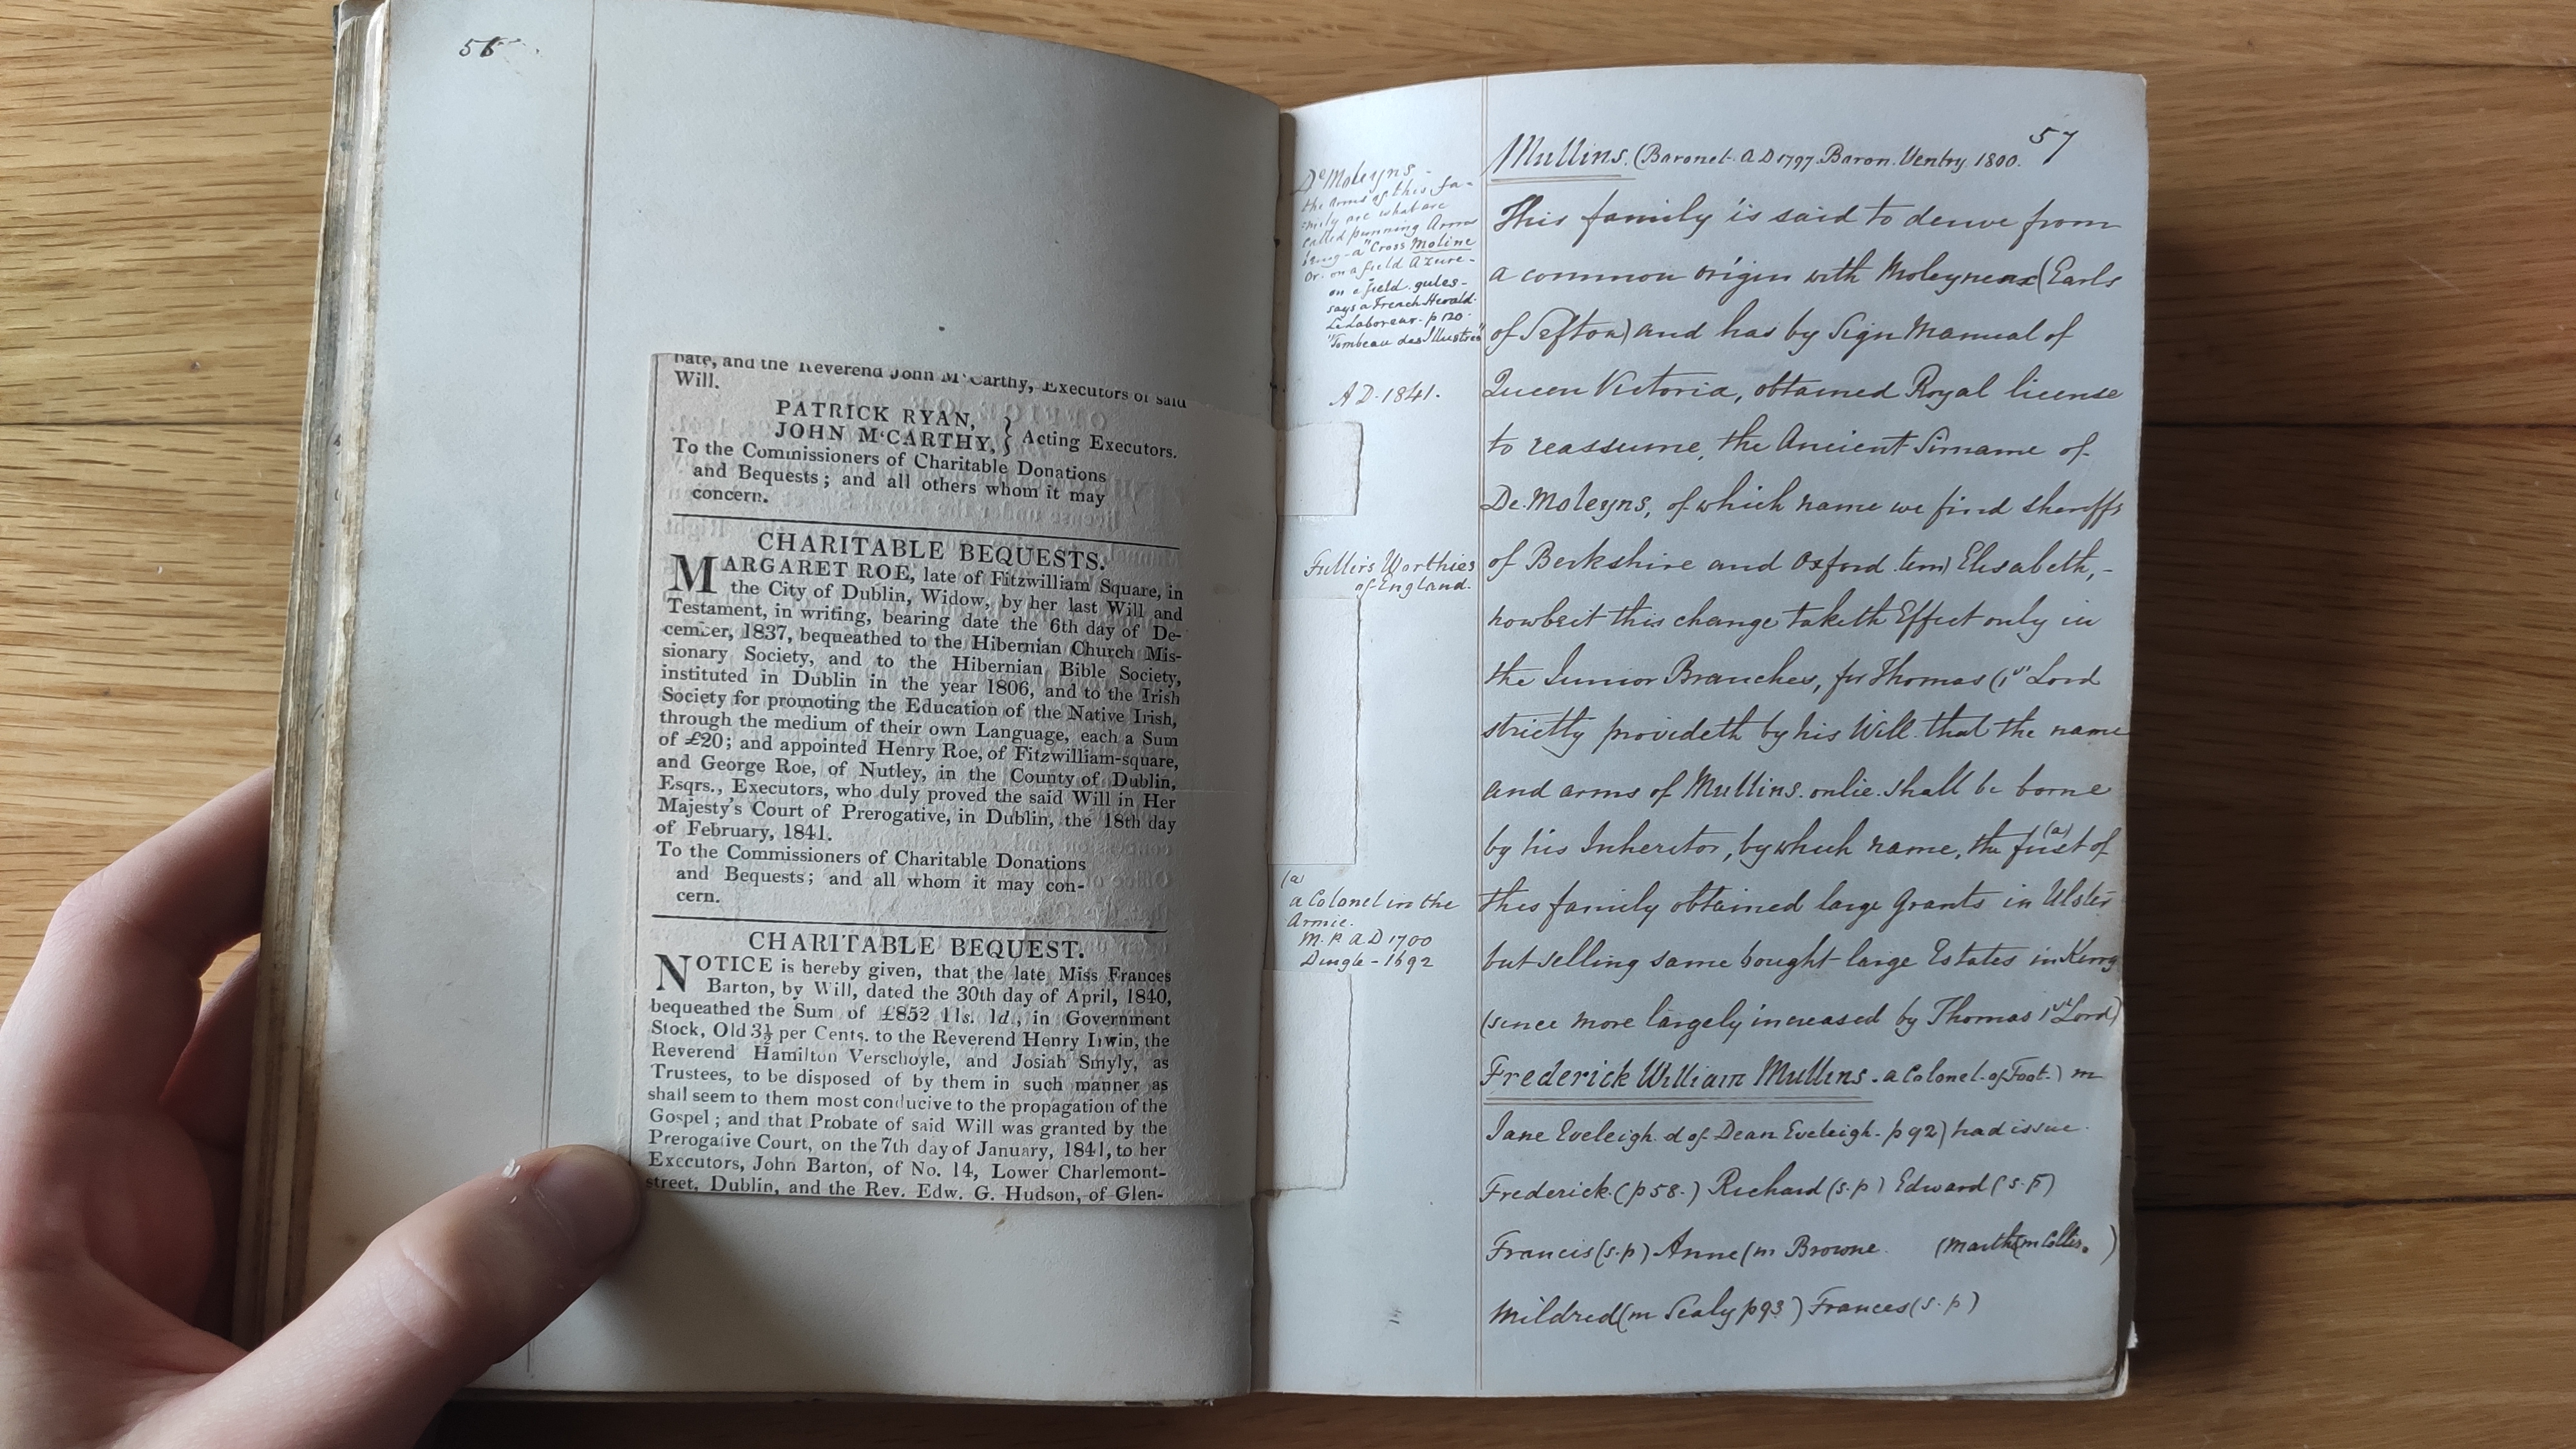 56
bate, and the Reverend John M'Carthy, Executors of said
Will.
PATRICK RYAN,
JOHN M'CARTHY, } Acting Executors.
To the Commissioners of Charitable Donations
and Bequests; and all others whom it may
concern.
CHARITABLE BEQUESTS.
MARGARET ROE, late of Fitzwilliam Square, in
the City of Dublin, Widow, by her last Will and
Testament, in writing, bearing date the 6th day of De-
cember, 1837, bequeathed to the Hibernian Church Mis-
sionary Society, and to the Hibernian Bible Society,
instituted in Dublin in the year 1806, and to the Irish
Society for promoting the Education of the Native Irish,
through the medium of their own Language, each a Sum
of £20; and appointed Henry Roe, of Fitzwilliam-square,
and George Roe, of Nutley, in the County of Dublin,
Esqrs., Executors, who duly proved the said Will in Her
Majesty's Court of Prerogative, in Dublin, the 18th day
of February, 1841.
To the Commissioners of Charitable Donations
and Bequests; and all whom it may con-
cern.
CHARITABLE BEQUEST.
NOTICE is hereby given, that the late Miss Frances
Barton, by Will, dated the 30th day of April, 1840,
bequeathed the Sum of £852 11s. 1d., in Government
Stock, Old 3½ per Cents. to the Reverend Henry Irwin, the
Reverend Hamilton Verschoyle, and Josiah Smyly, as
Trustees, to be disposed of by them in such manner as
shall seem to them most conducive to the propagation of the
Gospel; and that Probate of said Will was granted by the
Prerogative Court, on the 7th day of January, 1841, to her
Executors, John Barton, of No. 14, Lower Charlemont-
street, Dublin, and the Rev. Edw. G. Hudson, of Glen-
57
De Moleyns -
the arms of this fa-
mily are what are
called punning Arms
being - a "Cross Moline
Or. on a field Azure -
on a field. gules -
says a French Herald.
LeLaboreur. p 120.
"Tombeau des Illustres"
A D. 1841.
Fullers Worthies
of England.
(a)
a Colonel in the
Armie.
M. P. A D 1700
Dingle - 1692
Mullins. (Baronet. A D 1797. Baron. Ventry. 1800.
This family is said to derive from
a common origin with Moleyneux (Earls
of Sefton) and has by Sign Manual of
Queen Victoria, obtained Royal license
to reassume, the Ancient Sirname of
De Moleyns, of which name we find sheriffs
of Berkshire and Oxford. tem) Elisabeth, -
howbeit this change taketh Effect only in
the Junior Branches, for Thomas (1st Lord
strictly provideth by his Will that the name
and arms of Mullins. onlie. shall be borne
by his Inheritor, by which name, the first (a) of
this family obtained large grants in Ulster
but selling same bought large Estates in Kerry
(since more largely increased by Thomas 1st Lord)
Frederick William Mullins. a Colonel. of Foot.) m
Jane Eveleigh. d of Dean Eveleigh. p 92) had issue.
Frederick. (p 58.) Richard (s. p) Edward (s. p)
Francis (s. p) Anne (m Browne. (Martha m Collis.)
Mildred (m Sealy p 93) Frances (s. p)